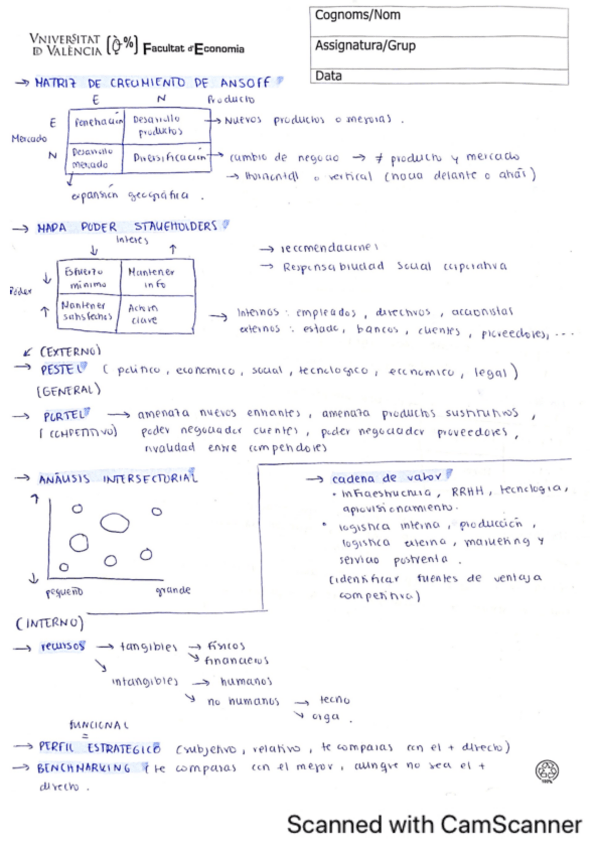 Cognoms/Nom
VNIVERSITAT
ID VALÈNCIA Facultat d'Economia
Assignatura/Grup
Data
→ MATRIZ DE CRECIMIENTO DE ANSOFF
E N Producto
E Penetración Desarrollo productos → Nuevos productos o mejoras.
Mercado
N Desarrollo mercado Diversificación → cambio de negocio → ≠ producto y mercado
→ Horizontal o vertical (hacia delante o atrás)
expansión geográfica.
→ MAPA PODER STAKEHOLDERS
Interés
↓ ↑
→ recomendaciones
→ Responsabilidad social corporativa
Poder ↓ Esfuerzo mínimo Mantener info
↑ Mantener satisfechos Actores clave → Internos: empleados, directivos, accionistas
externos: estado, bancos, clientes, proveedores, ...
↙ (EXTERNO)
→ PESTEL (político, económico, social, tecnológico, económico, legal)
(GENERAL)
→ PORTEL → amenaza nuevos entrantes, amenaza productos sustitutivos,
(COMPETITIVO) poder negociador clientes, poder negociador proveedores,
rivalidad entre competidores
→ ANÁLISIS INTERSECTORIAL
pequeño grande
→ cadena de valor
• infraestructura, RRHH, tecnología,
aprovisionamiento.
• logística interna, producción,
logística externa, marketing y
servicio postventa.
(identificar fuentes de ventaja
competitiva)
(INTERNO)
→ recursos → tangibles → físicos
↘ financieros
↘ intangibles → humanos
↘ no humanos → tecno
↘ orga.
FUNCIONAL
=
→ PERFIL ESTRATEGICO (subjetivo, relativo, te comparas con el + directo)
→ BENCHMARKING (te comparas con el mejor, aunque no sea el +
directo.
Scanned with CamScanner